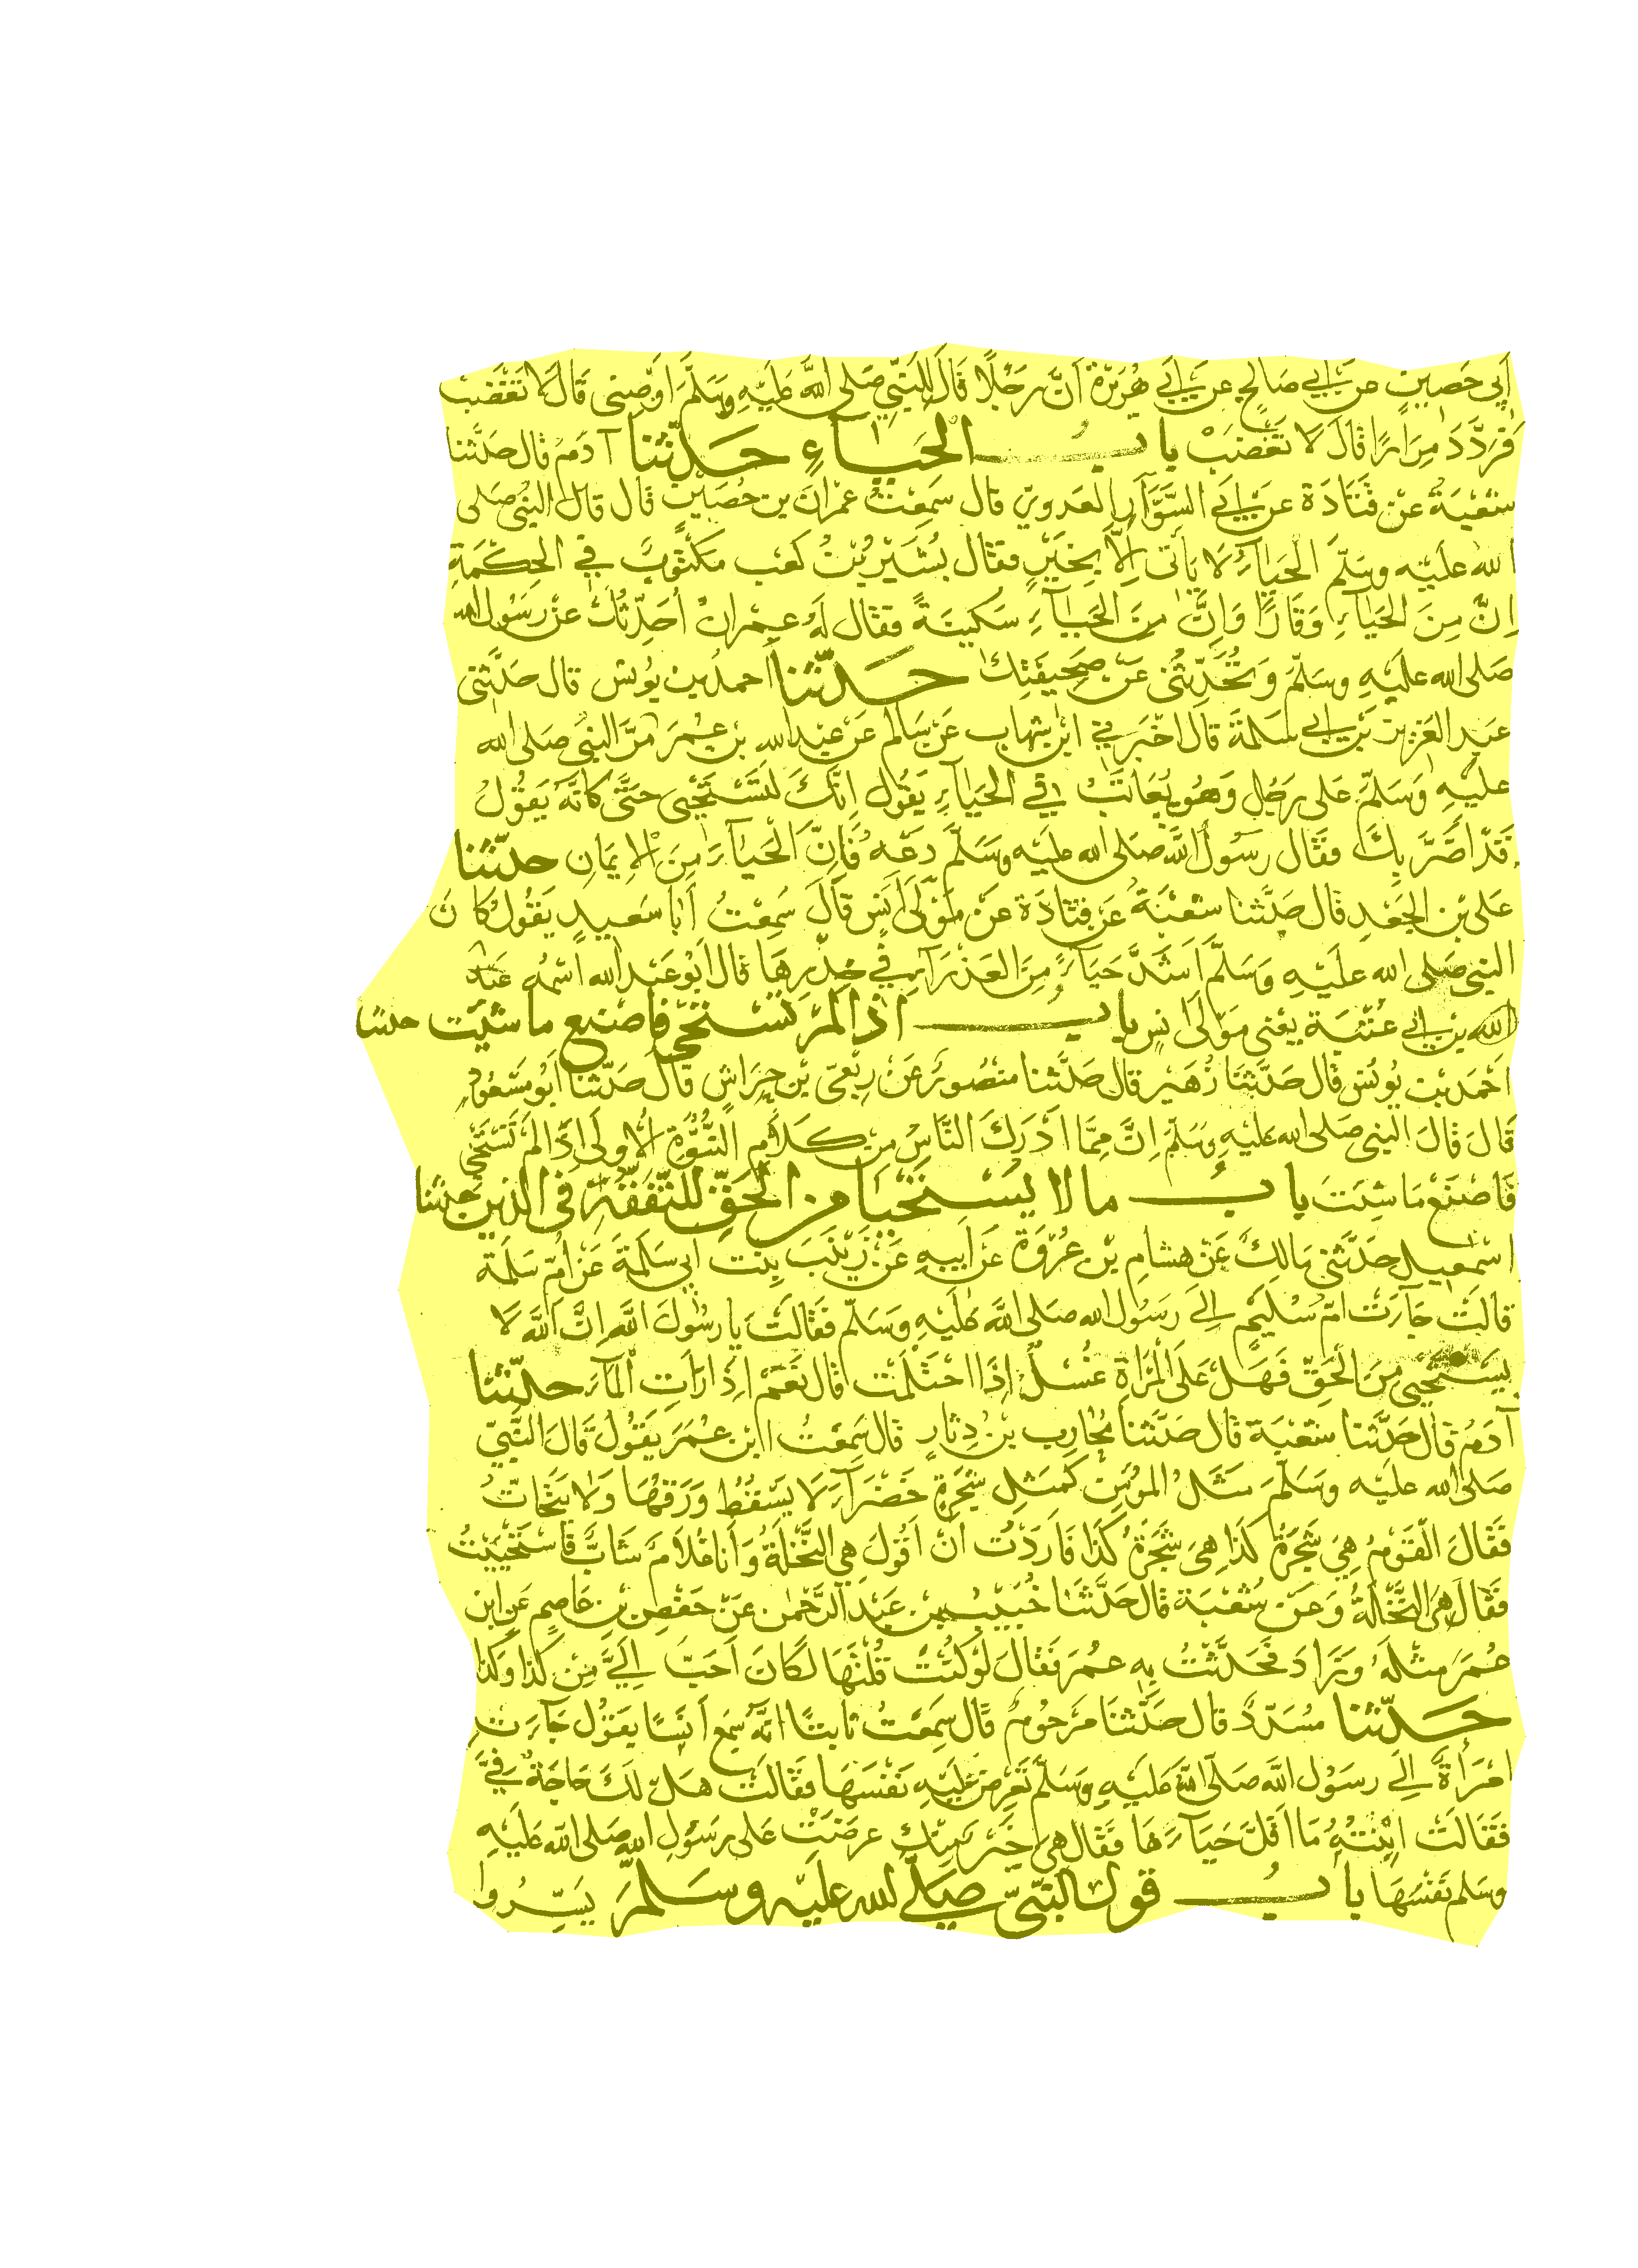 أَبِي حَصِينٍ عن أبي صَالِحٍ عن أبي هُرَيْرَةَ أَنَّ رَجُلًا قَالَ لِلنَّبِيِّ صَلى اللَّه عَلَيْهِ وَسَلَّمَ اَوْصِنِى قَالَ لَا تَغْضَبْ
فَرَدَّدَ مِرَارًا قَالَ لَا تَغْضَبْ بابُ الحَيَآءِ حَدّثنا آدَمُ قال حَدَّثنا
شُعْبَةُ عَنْ قَتَادَةَ عن أبي السَّوَّارِ العَدويّ قال سَمِعْتُ عمْرانَ بن حُصَيْنٍ قال قال النبىُّ صَلى
الله عَلَيْهِ وسَلّمَ الحَيَاءُ لَا يَأتى اِلّا بِخَيْرٍ فقال بُشَيْرُ بْنُ كعْب مَكْتُوبٌ فِي الحِكْمَةِ
اِنَّ مِنَ الحَيَاءِ وَقَارًا وَاِنَّ مِنَ الحَيَآءِ سَكينَةً فقال لَهُ عِمْرانُ اُحَدِّثُكَ عنْ رسُول الله
صَلى الله عليْهِ وسَلّمَ وَتُحَدِّثُنى عَنْ صَحِيفَتِكَ حَدّثنا احمدُ بن يُونس قال حَدَّثنى
عَبد العَزيز بن ابي سَلمَةَ قال اخْبَرني ابْن شِهابٍ عَنْ سَالمٍ عَنْ عَبْد اللهِ بْن عُمَرَ مَرَّ النبىُّ صَلى الله
عليْهِ وَسَلّمَ عَلى رَجُلٍ وَهُوَ يُعَاتَبُ في الحَيَاءِ يَقُول اِنَّكَ لَتَسْتَحْيِى حَتّى كَانَّهُ يَقُولُ
قَدْ اَضَرَّ بِكَ فقَال رسُولُ اللَّه صَلى الله عليْه وَسَلَّمَ دَعْهُ فَاِنَّ الحَيَآءَ مِنَ الاِيمَانِ حدّثنا
عَلى بْن الجَعْدِ قال حَدَّثنا شعْبَةُ عَنْ قتَادَةَ عَنْ مَوْلَى اَنَسٍ قَالَ سَمِعْتُ اَبا سَعيدٍ يَقُولُ كانَ
النبى صَلى الله عليْهِ وَسَلَّمَ اَشَدَّ حَيَآءً مِنَ العَذْرَآءِ في خِدْرِهَا قال اَبُو عَبْد الله اسْمُهُ عَبْدُ
الله بن ابي عُتْبَة يعْنى مَوْلَى اَنسٍ بابُ اذا لمْ تَسْتحْىِ فاصْنع ما شئت حدثنا
اَحْمَد بن يُونُسَ قال حَدَّثنا زُهَيْر قال حَدَّثنا منْصُورٌ عَنْ رِبْعىّ بْن حِرَاشٍ قال حَدّثنا اَبُو مَسْعُودٍ
قَالَ قالَ النبى صَلى الله عليْهِ وسَلّمَ اِنَّ مِمَّا اَدْرَكَ النَّاسُ مِنْ كَلَامِ النُّبُوَّةِ الاُولَى اِذَا لمْ تَسْتَحْىِ
فَاصْنَعْ مَا شِئتَ بابُ ما لا يُسْتَحْيَا من الحَقّ لِلتّفَقُّهِ في الدّين حدثنا
اسْمٰعيل حَدَّثنى مَالِكٌ عَنْ هشام بْن عُرْوَةَ عَنْ اَبيهِ عَنْ زَيْنَبَ بِنْت اَبي سَلَمَةَ عَنْ اُمّ سَلَمَةَ
قالَتْ جَآءَتْ اُمّ سُلَيْمٍ اِلَى رَسُول الله صَلى اللَّه عَلَيْهِ وَسَلّمَ فَقَالَتْ يا رسُولَ اللَّه اِنَّ اللَّهَ لَا
يَسْتَحْيِى مِنَ الحَقّ فَهَلْ عَلَى المَرْاَةِ غُسْلٌ اِذَا احْتَلَمَتْ قال نَعَمْ اِذَا رَاَتِ المآءَ حدّثنا
آدَمُ قال حَدَّثنا شعْبَة قال حَدَّثنا مُحَارِب بْنُ دِثارٍ قال سَمِعْتُ ابْن عُمَرَ يَقُولُ قَالَ النَّبِيّ
صَلى الله عليْه وسَلّمَ مَثَلُ المؤمِنِ كَمَثَلِ شَجَرَةٍ خَضْرَآءَ لَا يَسْقُطُ وَرَقُهَا وَلَا يَتَحَاتُّ
فَقَالَ القَوْمُ هِيَ شَجَرَةُ كَذَا هِىَ شَجَرَةُ كَذَا فَاَرَدْتُ اَنْ اَقُولَ هِيَ النَّخْلَةُ وَاَنا غُلَامٌ شَابٌّ فَاسْتَحْيَيْتُ
فَقَالَ هِىَ النَّخْلَةُ وَعَنْ شُعْبَة قال حَدَّثَنا خُبَيْب بن عَبْد الرَّحْمٰن عَنْ حَفْص بْن عَاصِمٍ عَنِ ابْن
عُمَرَ مثلَهُ وَزَادَ فَحَدَّثْتُ بِه عمَرَ فَقَالَ لَوْ كُنْتَ قُلْتَهَا لَكَانَ اَحَبَّ اِلَيَّ مِنْ كَذَا وَكَذَا
حَدّثنا مُسَدّدٌ قال حَدَّثنَا مَرْحُومٌ قال سَمِعْتُ ثابتًا اَنَّهُ سَمِعَ اَنسًا يقُول جَآءَتِ
امْرَأَةٌ اِلَى رسُول اللَّه صَلّى اللَّه عَليْهِ وَسَلّمَ تَعْرِضُ عَلَيْهِ نَفْسَهَا فقَالَتْ هَلْ لَكَ حَاجَةٌ فِيَّ
فَقَالَتْ ابْنَتُهُ مَا اَقَلَّ حَيَآءَهَا فَقَال هِىَ خَيْرٌ مِنْكِ عَرَضَتْ عَلى رسُولِ الله صَلى الله عَلَيْهِ
وسَلم نَفْسَهَا بابُ قول النبّىّ صَلّى الله عليْه وسَلّمَ يَسِّرُوا